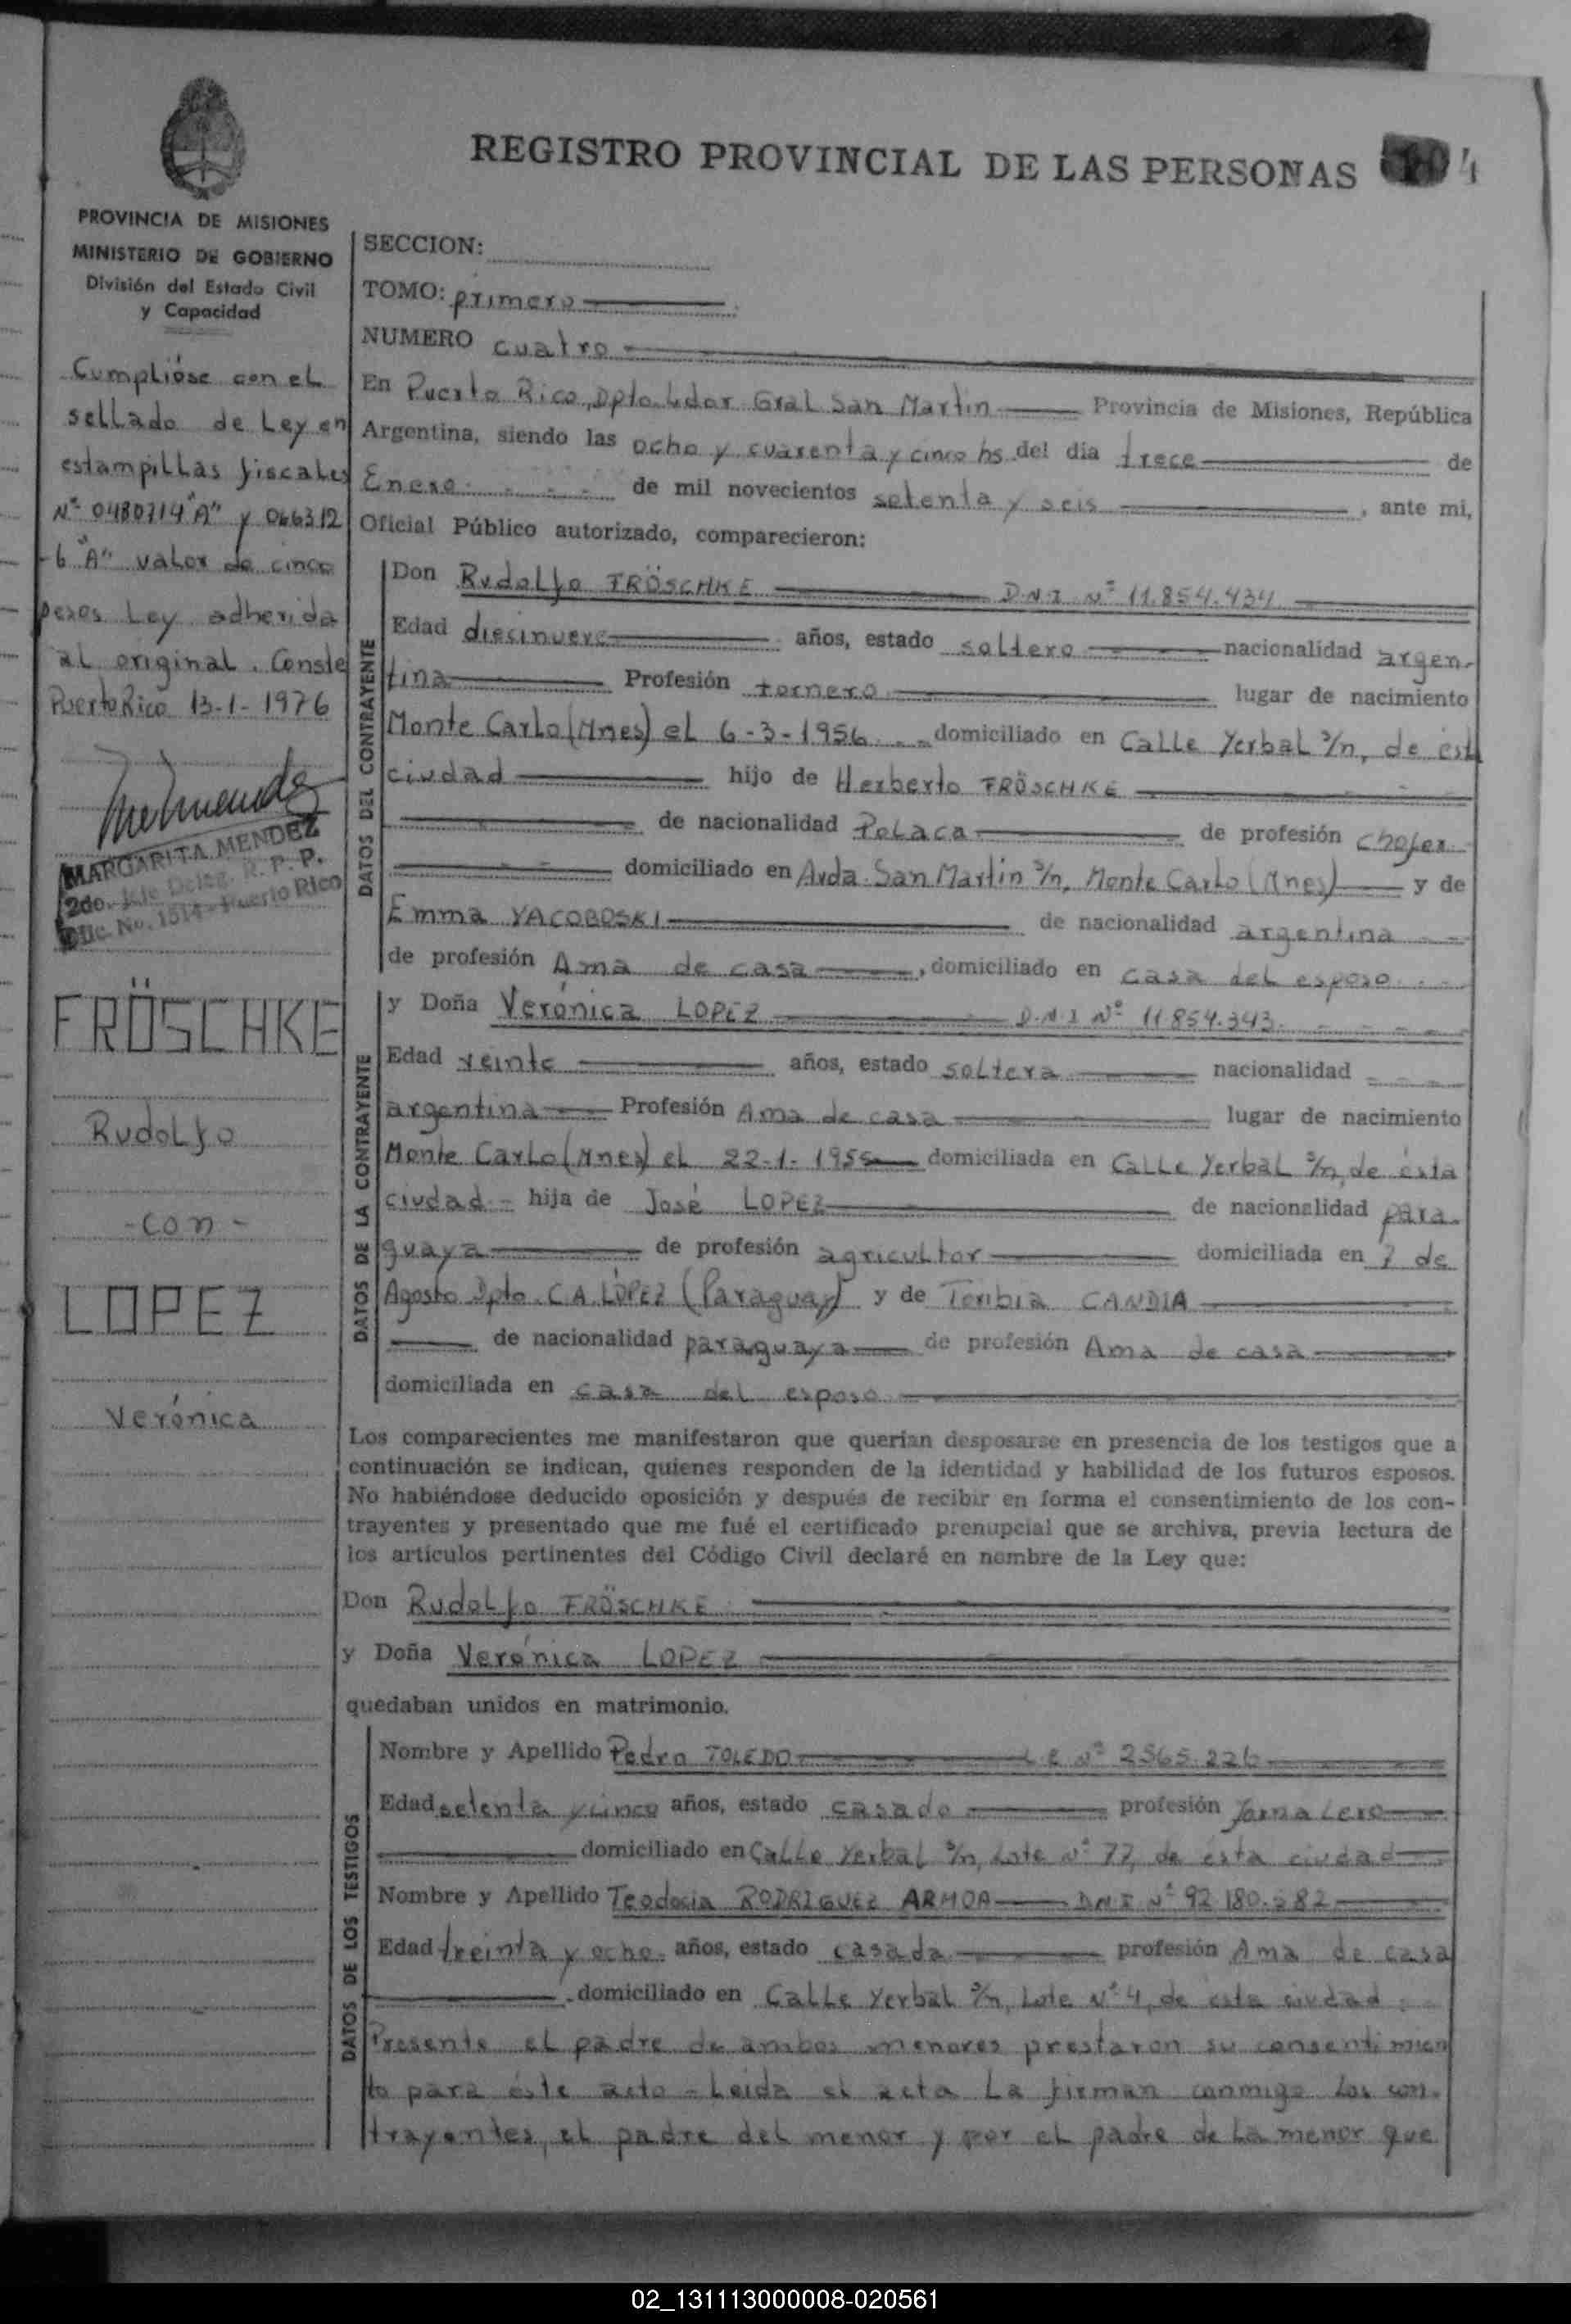 REGISTRO PROVINCIAL DE LAS PERSONAS 4
PROVINCIA DE MISIONES
MINISTERIO DE GOBIERNO
División del Estado Civil
y Capacidad
Cumplióse con el
sellado de Ley en
estampillas fiscales
Nº 0480714 "A" y 066312
-6 "A" valor de cinco
pesos Ley adherida
al original. Conste
Puerto Rico 13-1-1976
MARGARITA MENDEZ
2do. Jefe Deleg. R. P. P.
Ofic. No. 1514 - Puerto Rico
FRÖSCHKE
Rudolfo
-con-
LOPEZ
Verónica
SECCION:
TOMO: primero
NUMERO cuatro
En Puerto Rico, Dpto. Ldor. Gral San Martin Provincia de Misiones, República
Argentina, siendo las ocho y cuarenta y cinco hs del día trece de
Enero de mil novecientos setenta y seis, ante mi,
Oficial Público autorizado, comparecieron:
DATOS DEL CONTRAYENTE
Don Rudolfo FRÖSCHKE D.N.I Nº 11.854.434
Edad diecinueve años, estado soltero nacionalidad argen-
tina Profesión tornero lugar de nacimiento
Monte Carlo (Mnes) el 6-3-1956 domiciliado en Calle Yerbal S/n, de esta
ciudad hijo de Herberto FRÖSCHKE
de nacionalidad Polaca de profesión chofer
domiciliado en Avda. San Martin S/n, Monte Carlo (Mnes) y de
Emma YACOBOSKI de nacionalidad argentina
de profesión Ama de casa, domiciliado en casa del esposo
DATOS DE LA CONTRAYENTE
y Doña Verónica LOPEZ D.N.I Nº 11.854.343
Edad veinte años, estado soltera nacionalidad
argentina Profesión Ama de casa lugar de nacimiento
Monte Carlo (Mnes) el 22-1-1955 domiciliada en Calle Yerbal S/n, de ésta
ciudad - hija de José LOPEZ de nacionalidad para-
guaya de profesión agricultor domiciliada en 7 de
Agosto Dpto. C.A. LÓPEZ (Paraguay) y de Toribia CANDIA
de nacionalidad paraguaya de profesión Ama de casa
domiciliada en casa del esposo
Los comparecientes me manifestaron que querían desposarse en presencia de los testigos que a
continuación se indican, quienes responden de la identidad y habilidad de los futuros esposos.
No habiéndose deducido oposición y después de recibir en forma el consentimiento de los con-
trayentes y presentado que me fué el certificado prenupcial que se archiva, previa lectura de
los artículos pertinentes del Código Civil declaré en nombre de la Ley que:
Don Rudolfo FRÖSCHKE
y Doña Verónica LOPEZ
quedaban unidos en matrimonio.
DATOS DE LOS TESTIGOS
Nombre y Apellido Pedro TOLEDO L.E Nº 2565.226
Edad setenta y cinco años, estado casado profesión Jornalero
domiciliado en Calle Yerbal S/n, Lote Nº 77, de ésta ciudad
Nombre y Apellido Teodocia RODRIGUEZ ARMOA DNI Nº 92.180.282
Edad treinta y ocho años, estado casada profesión Ama de casa
domiciliado en Calle Yerbal S/n, Lote Nº 4, de ésta ciudad
Presente el padre de ambos menores prestaron su consentimien
to para éste acto - Leida el acta La firman conmigo los con-
trayentes, el padre del menor y por el padre de la menor que
02_131113000008-020561